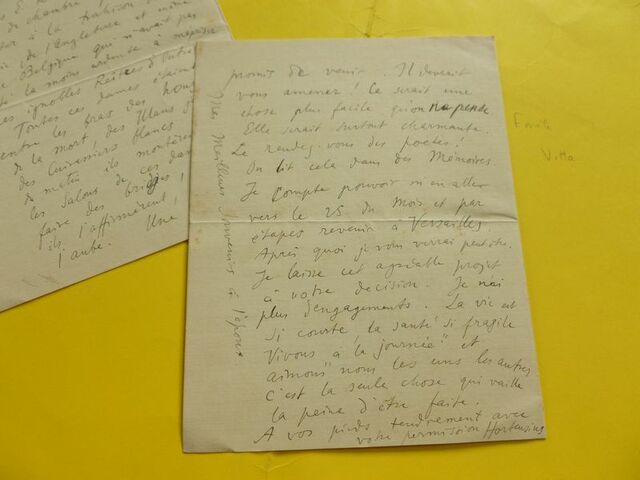 de chambre !
à la
de l'Angleterre et même
Belgique qui n'avait pas
la moins
ignobles Reîtres d'outre
Toutes ces dames étaient
entre les bras des
de la mort, des Ulans
des Cuirassiers blancs
de matin ils montèrent
les salons de ces dames
faire des brides !
ils l'affirmèrent !
l'aube. Une
promis de venir. Il devrait
vous amener ! Ce serait une
chose plus facile qu'on ne pense.
Elle serait surtout charmante.
Le rendez-vous des poètes !
On lit cela dans des Mémoires
Je compte pouvoir m'en aller
vers le 25 du mois et par
étapes revenir à Versailles
Après quoi je vous verrai peut-être.
Je laisse cet agréable projet
à votre décision. Je n'ai
plus d'engagements. La vie est
si courte, la santé si fragile
Vivons "à la journée" et
aimons nous les uns les autres
c'est la seule chose qui vaille
la peine d'être faite.
A vos pieds tendrement avec
votre permission Hortensius
Mes Meilleurs Souvenirs à l'époux
Emile
Vitta